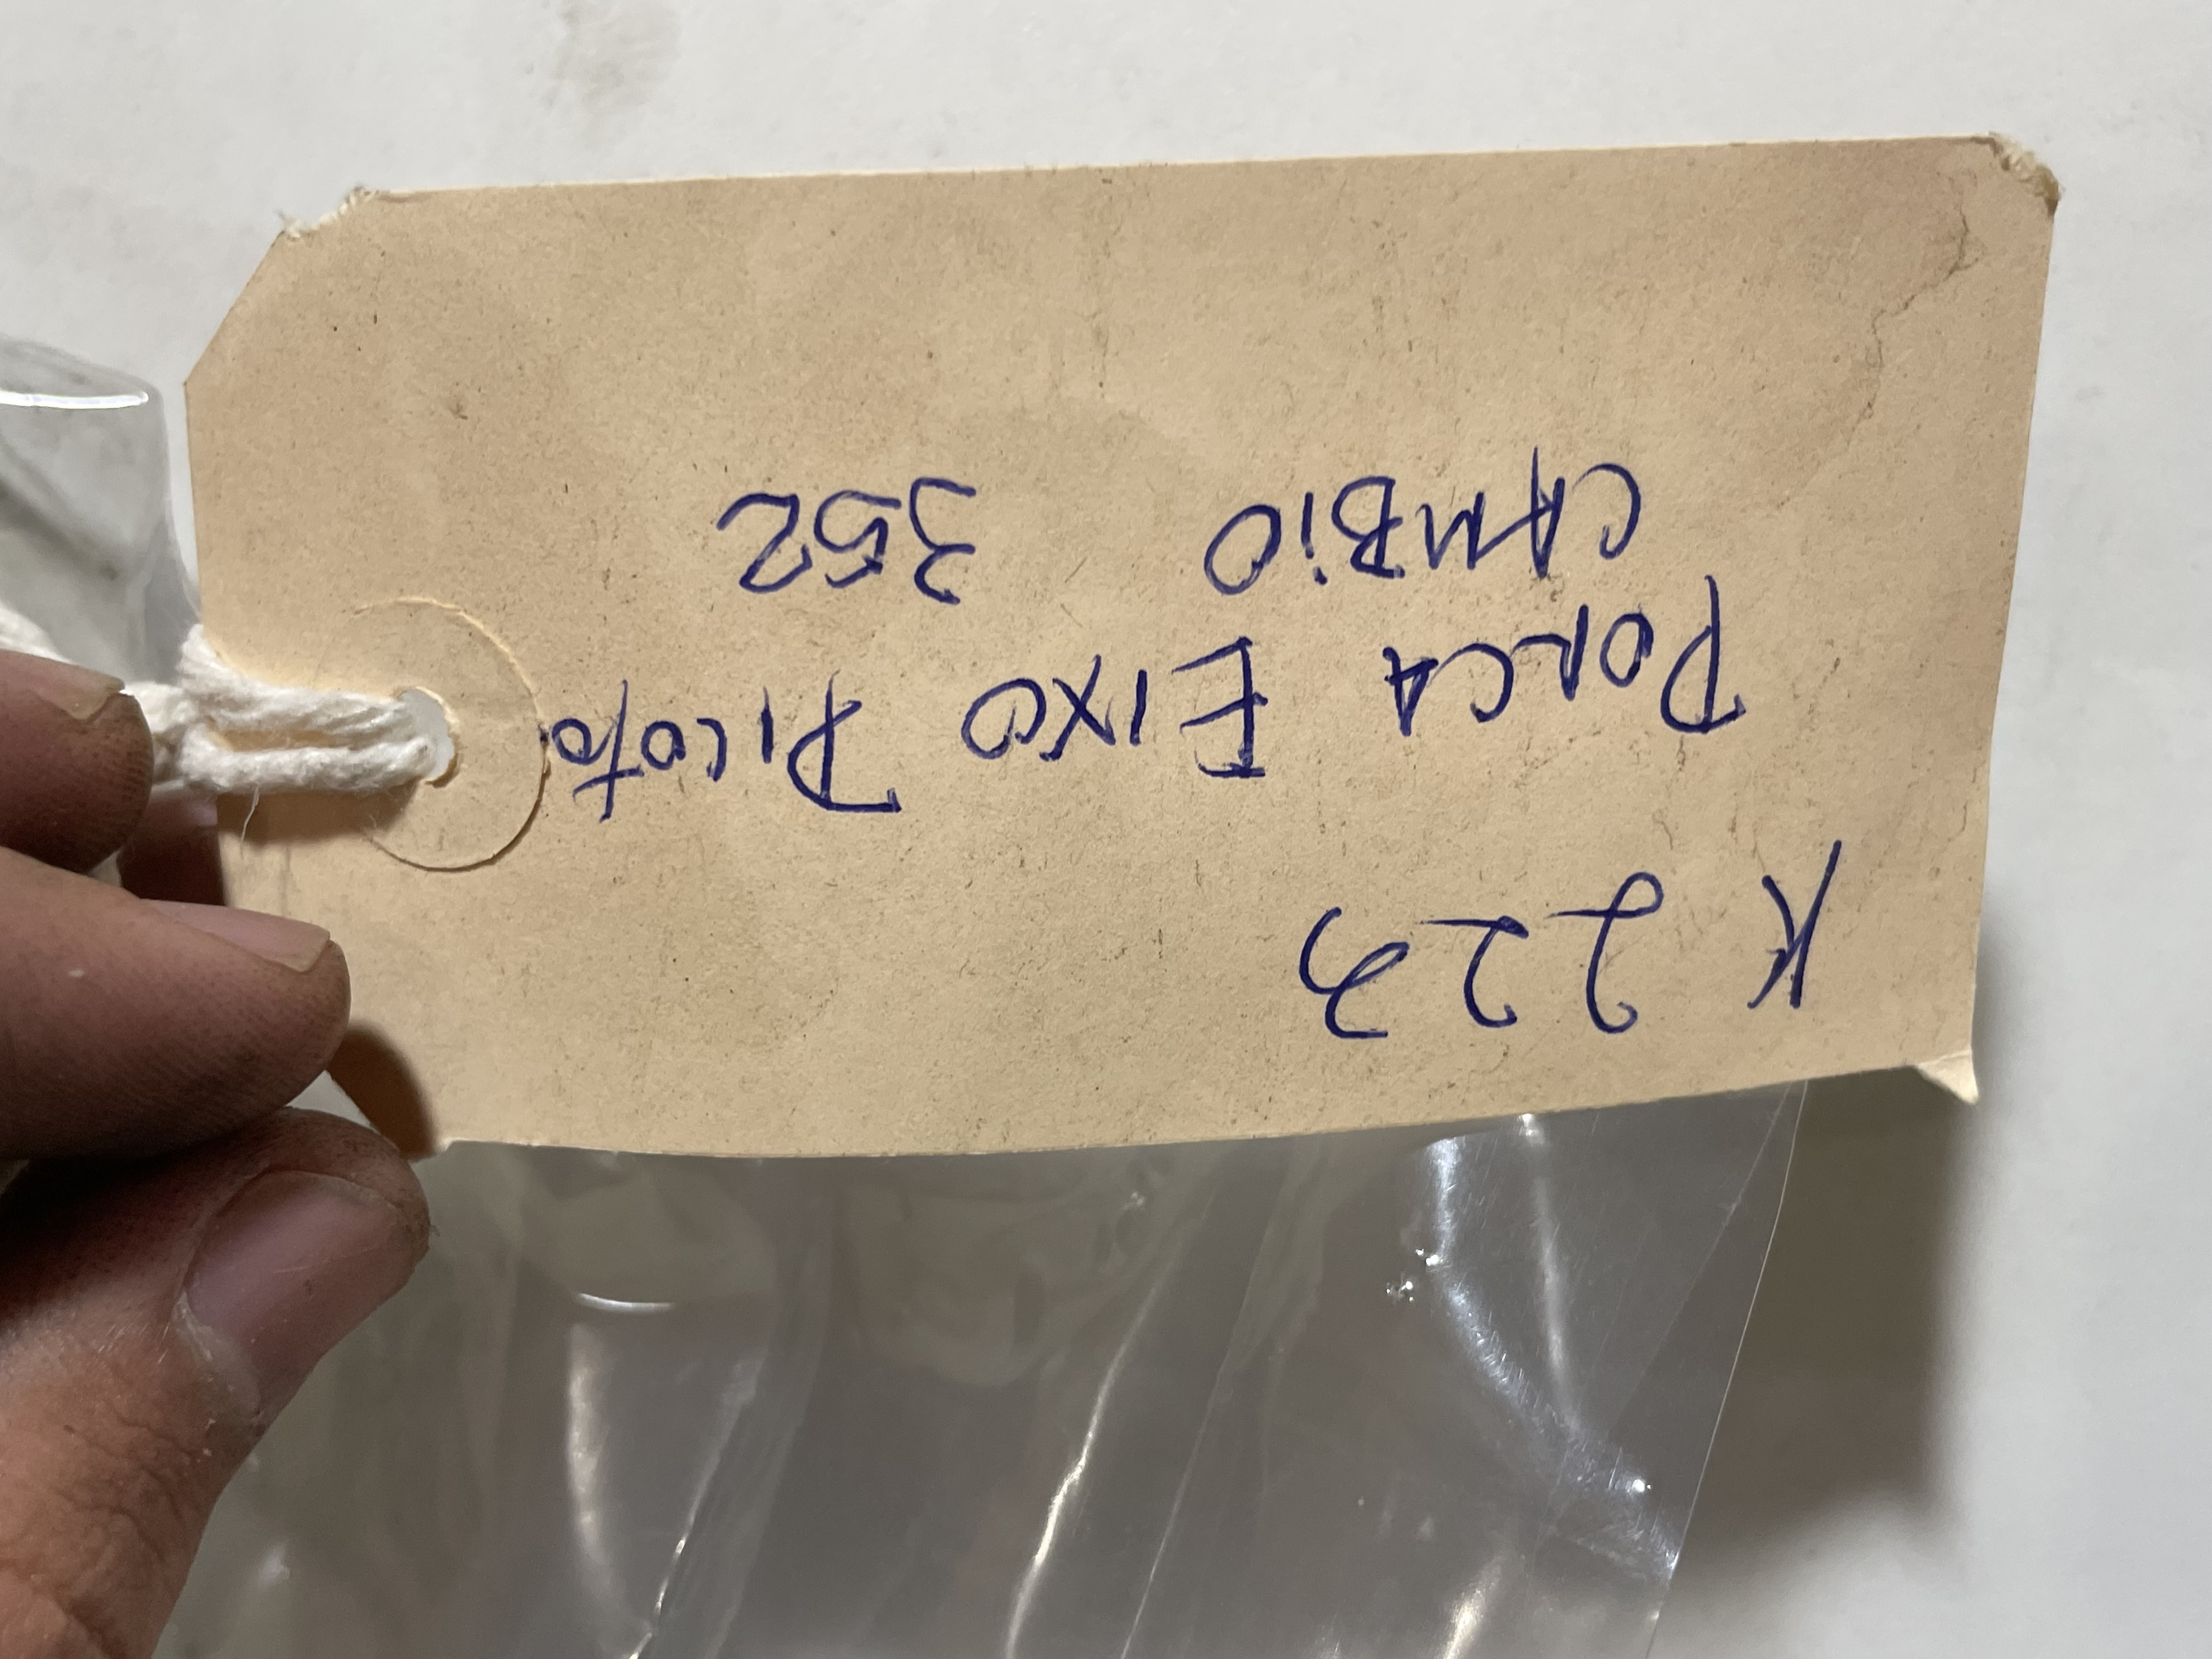 K 223
PORCA EIXO PICOTO
CAMBiO 352